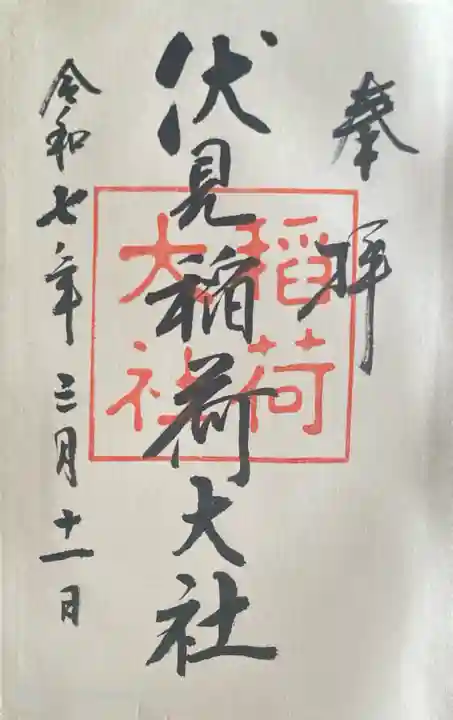 奉拝
伏見稲荷大社
稲荷
大社
令和七年三月十一日